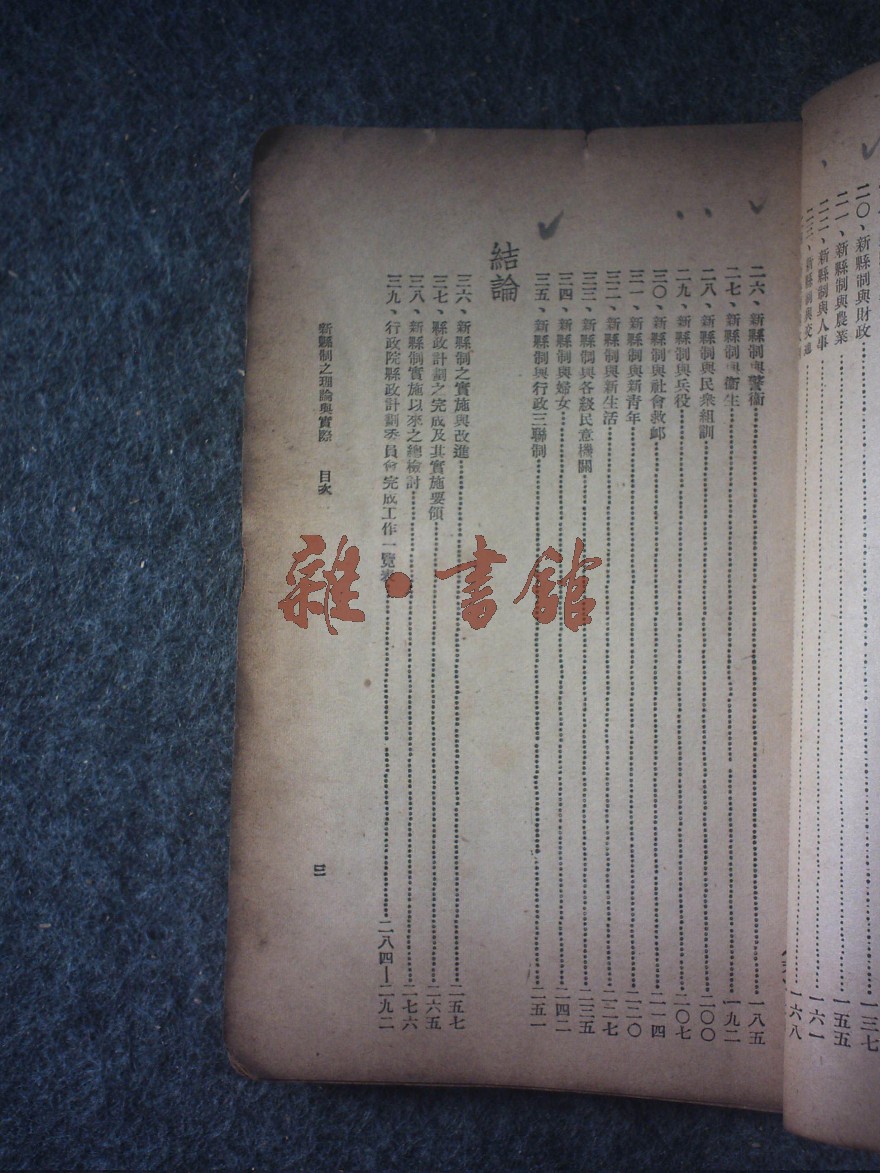 二〇、新縣制與財政……一三七
二一、新縣制與農業……一五五
二二、新縣制與人事……一六一
二三、新縣制與交通……一六八
二六、新縣制與警衞……一八五
二七、新縣制與衞生……一九二
二八、新縣制與民衆組訓……二〇〇
二九、新縣制與兵役……二〇七
三〇、新縣制與社會救邺……二一四
三一、新縣制與新青年……二二〇
三二、新縣制與新生活……二二七
三三、新縣制與各級民意機關……二三五
三四、新縣制與婦女……二四二
三五、新縣制與行政三聯制……二五一
結論
三六、新縣制之實施與改進……二五七
三七、縣政計劃之完成及其實施要領……二六五
三八、新縣制實施以來之總檢討……二七六
三九、行政院縣政計劃委員會完成工作一覽表……二八四—二九二
新縣制之理論與實際 目次
二
雜·書館